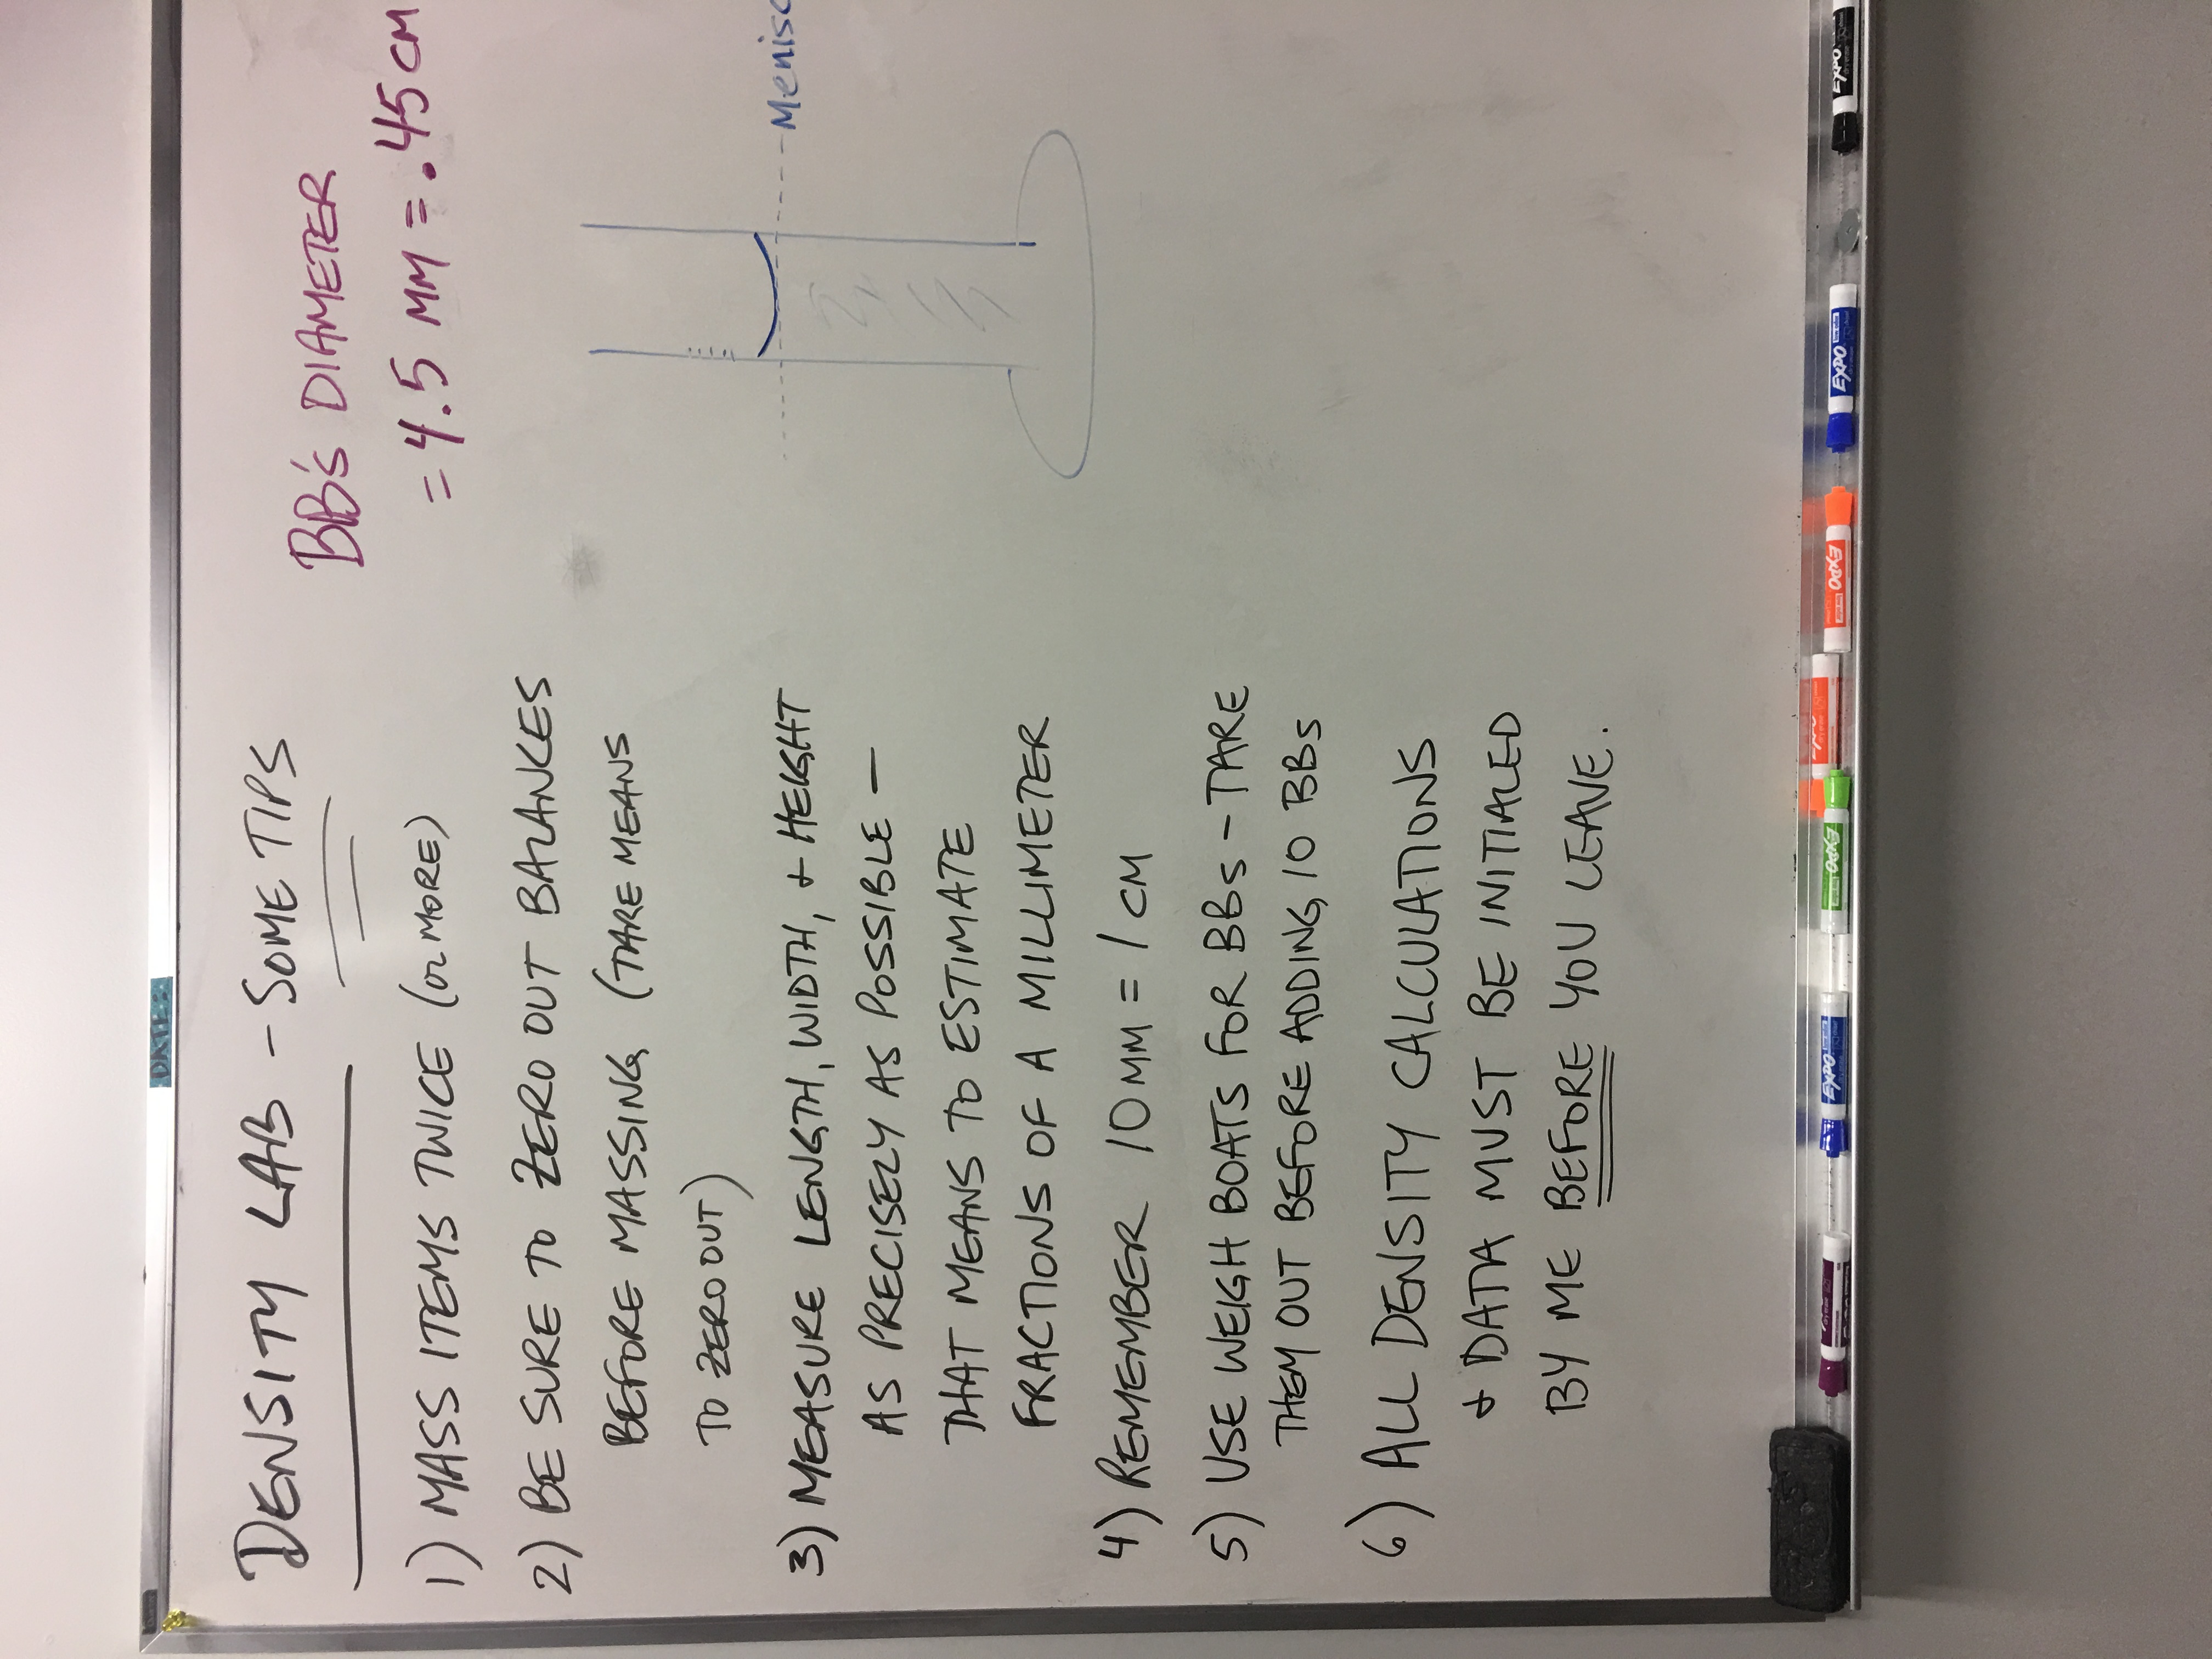 DENSITY LAB - SOME TIPS
1) MASS ITEMS TWICE (OR MORE)
2) BE SURE TO ZERO OUT BALANCES
BEFORE MASSING (TARE MEANS
TO ZERO OUT)
3) MEASURE LENGTH, WIDTH, + HEIGHT
AS PRECISELY AS POSSIBLE -
THAT MEANS TO ESTIMATE
FRACTIONS OF A MILLIMETER
4) REMEMBER 10 MM = 1 CM
5) USE WEIGH BOATS FOR BBs - TARE
THEM OUT BEFORE ADDING 10 BBs
6) ALL DENSITY CALCULATIONS
+ DATA MUST BE INITIALED
BY ME BEFORE YOU LEAVE.
BB's DIAMETER
= 4.5 MM = .45 CM
Menisc
DATE:
EXPO
EXPO
EXPO
EXPO
EXPO